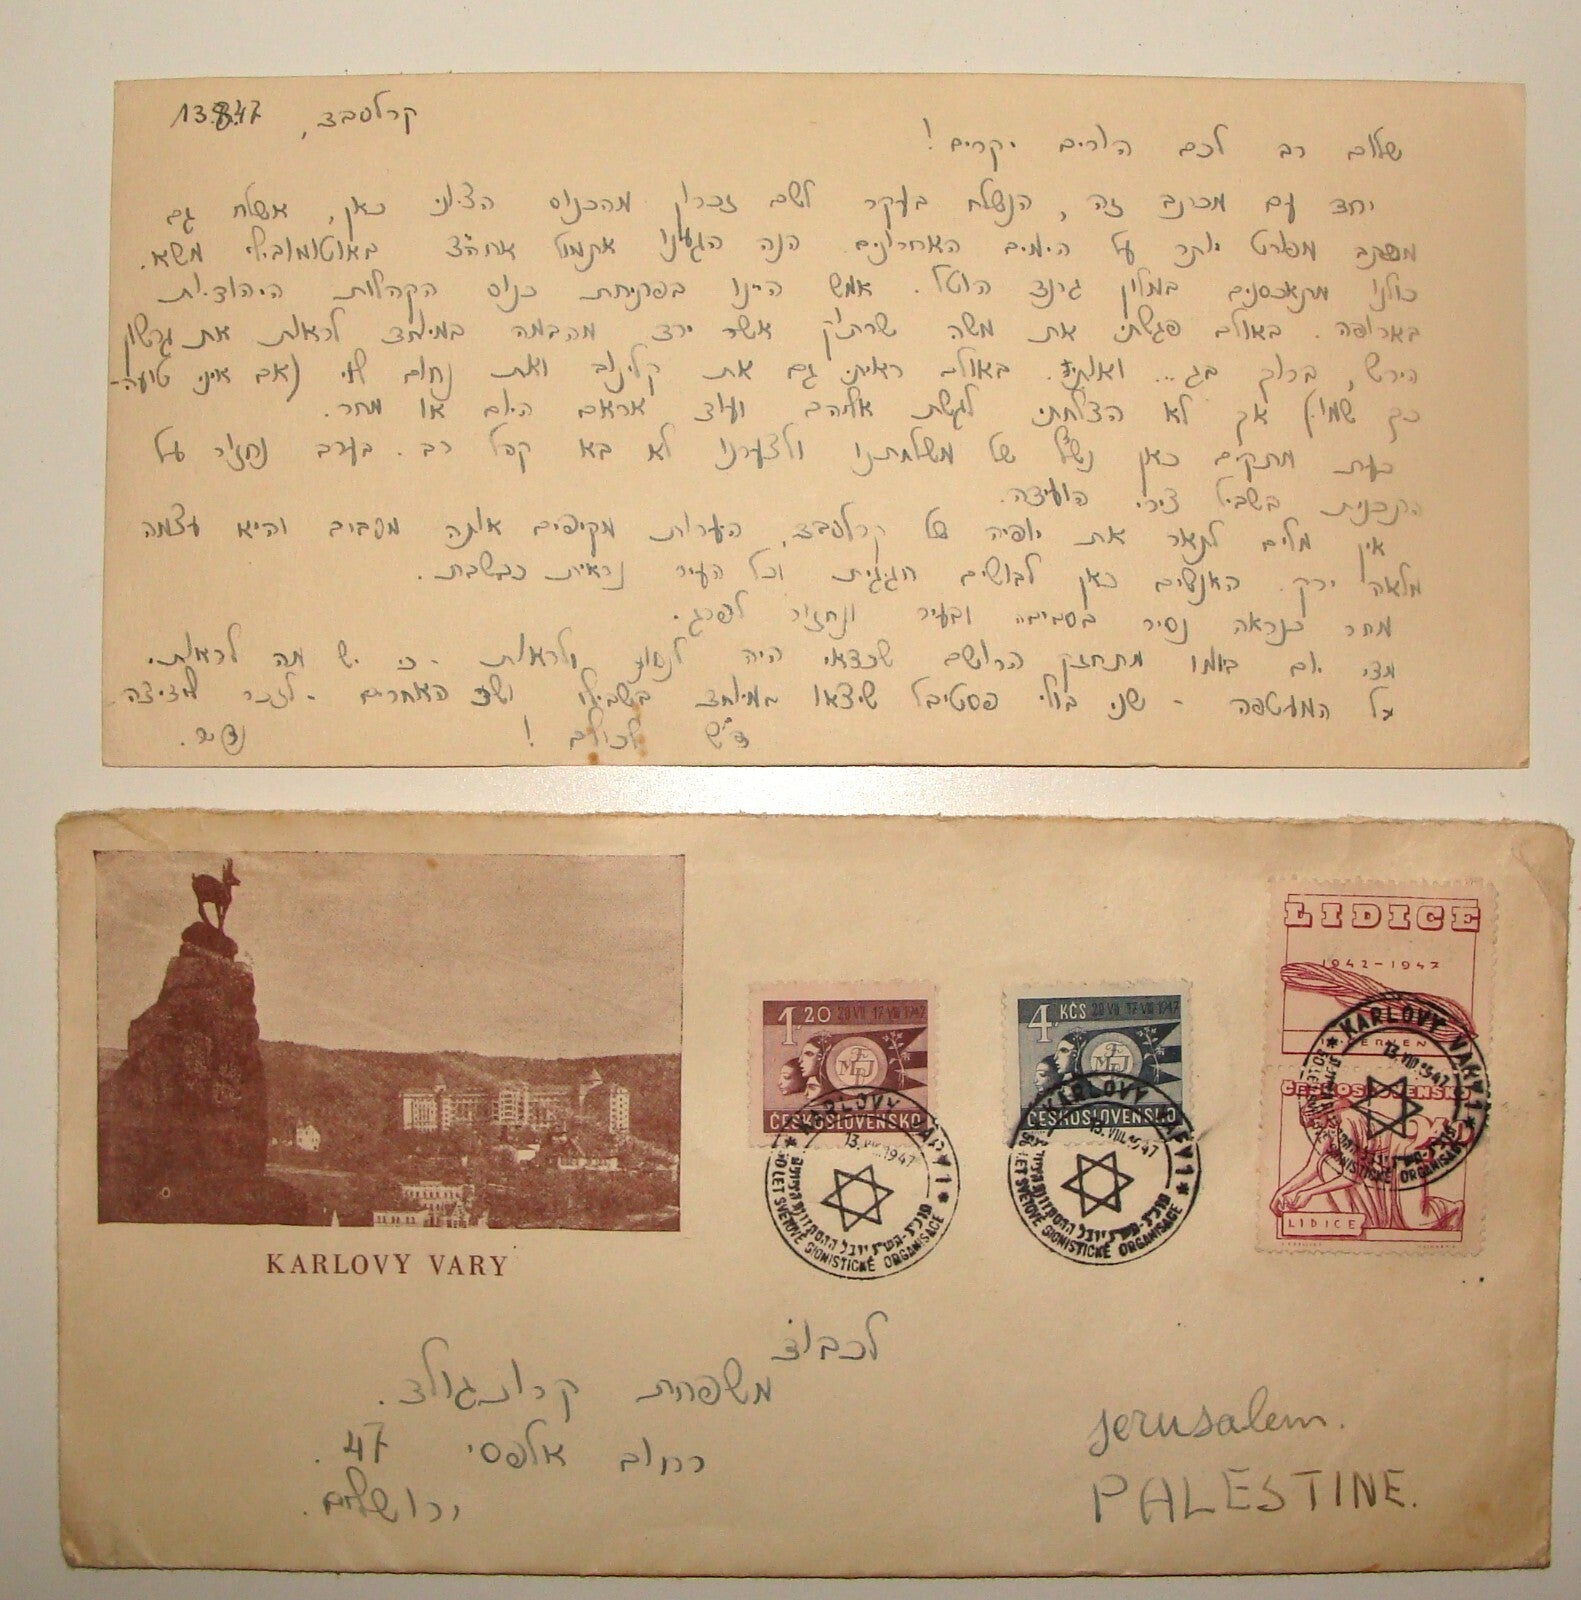 קרלסבד, 13.8.47
שלום רב לכם הורים יקרים!
יחד עם מכתב זה, הנשלח בעקר לשם זכרון מהכנוס הציוני כאן, אשלח גם
מכתב מפורט יותר על הימים האחרונים. הנה הגענו אתמול אחה"צ באוטומוביל משא.
כולנו מתאכסנים במלון גרנד הוטל. אמש היינו בפתיחת כנוס הקהלות היהודיות
באירופה. באולם פגשתי את משה שרתוק אשר ירד מהבמה במיוחד לראות את גרשון
הירש, ברוך בג... ואותי. באולם ראיתי גם את קלינוב ואת נחום לוי (אם איני טועה-
כך שמו) אך לא הצלחתי לגשת אליהם ועוד אראם היום או מחר.
כעת מתקים כאן נשף של משלחתנו ולצערנו לא בא קהל רב. בערב נחזור על
התכנית בשביל צירי הועידה.
אין מלים לתאר את יופיה של קרלסבד. היערות מקיפים אותה מסביב והיא עצמה
מלאה ירק. האנשים כאן לבושים חגיגית וכל העיר נראית כבשבת.
מחר כנראה נסיר בסביבה ובעיר ונחזור לפרג.
מדי יום ביומו מתחזק הרושם שכדאי היה לנסוע ולראות - כי יש מה לראות.
על המעטפה - שני בולי פסטיבל שיצאו במיוחד בשבילו ושני האחרים - לזכר לידיצה
ד"ש לכולם!
KARLOVY VARY
1.20 20 VII 17 VIII 1947
ČESKOSLOVENSKO
4 KČS 20 VII 17 VIII 1947
ČESKOSLOVENSKO
LIDICE
1942-1947
ČERVEN
ČESKOSLOVENSKO
LIDICE
KARLOVY VARY 1
13.VIII.1947
50 LET SVĚTOVÉ SIONISTICKÉ ORGANISACE
KARLOVY VARY 1
13.VIII.1947
50 LET SVĚTOVÉ SIONISTICKÉ ORGANISACE
KARLOVY VARY 1
13.VIII.1947
50 LET SVĚTOVÉ SIONISTICKÉ ORGANISACE
לכבוד
משפחת קרונגולד.
רחוב אלפסי 47.
ירושלים.
Jerusalem.
PALESTINE.